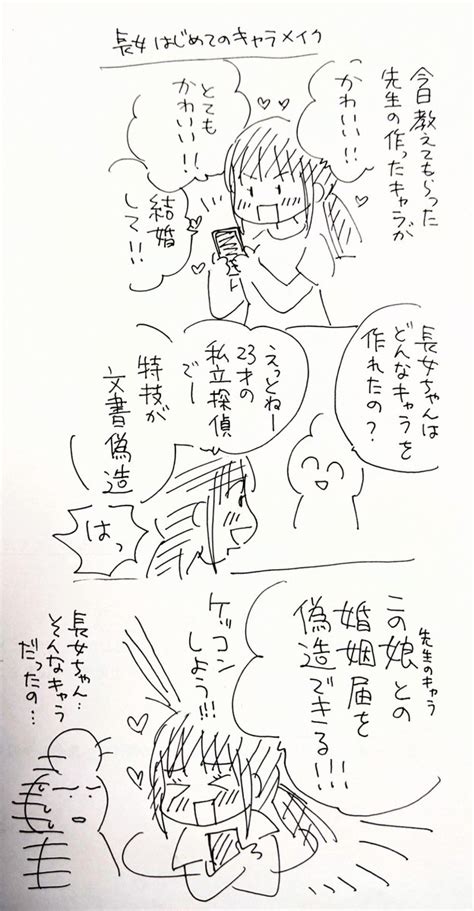 長女はじめてのキャラメイク
今日教えてもらった
先生の作ったキャラが
かわいい!!
とても
かわいい!!
結婚
して!!
長女ちゃんは
どんなキャラを
作れたの?
えっとねー
23才の
私立探偵
でー
特技が
文書偽造
はっ
先生のキャラ
この娘との
婚姻届を
偽造できる!!!
ケッコン
しよう!!!
長女ちゃん…
そんなキャラ
だったの…